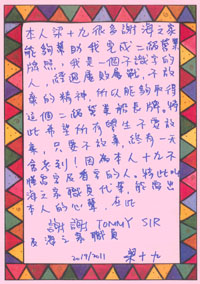 本人梁十九很多謝海之家
能夠幫助我完成二級營業
牌照，我是一個不識字的
人，經過屢敗屢戰，不放
棄的精神，所以能夠取得
這個二級營業船長牌。特
此希望所有學生不要放
棄，只要不放棄，總有一天
會勝利！因為本人十九不
懂書寫及看字的人。特此叫
海之家職員代筆，能寫出
本人的心聲，在此
謝謝 TOMMY SIR
及海之家職員
20/9/2011 梁十九